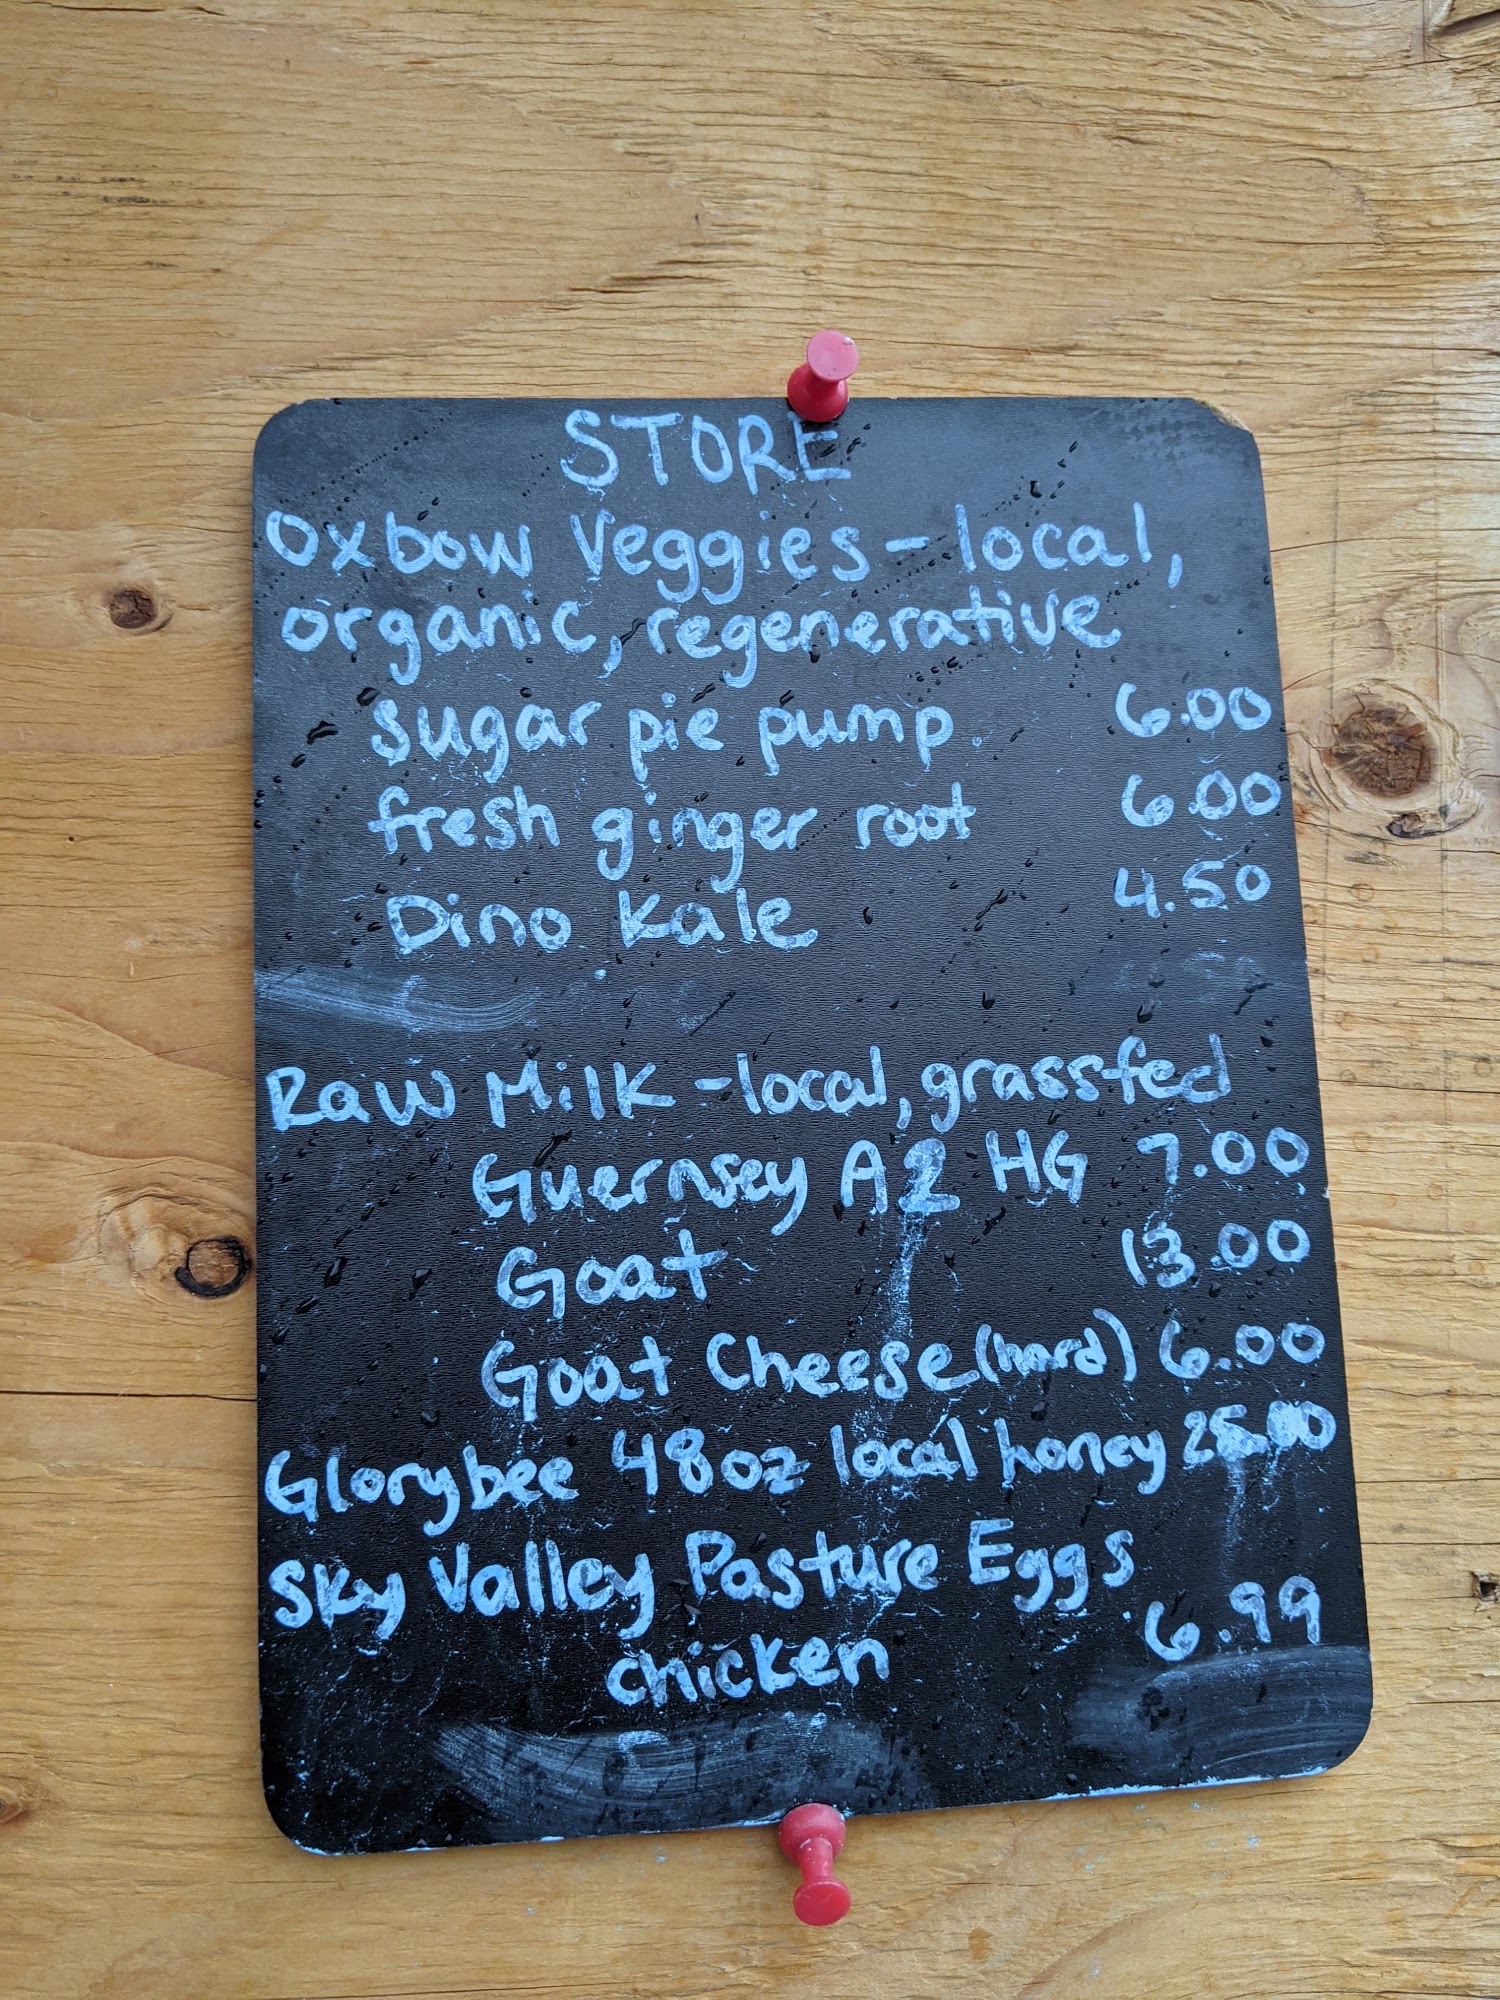 STORE
Oxbow Veggies - local,
organic, regenerative
sugar pie pump. 6.00
fresh ginger root 6.00
Dino Kale 4.50
Raw Milk - local, grassfed
Guernsey A2 HG 7.00
Goat 13.00
Goat Cheese (hard) 6.00
Glorybee 48oz local honey
Sky Valley Pasture Eggs
chicken 6.99